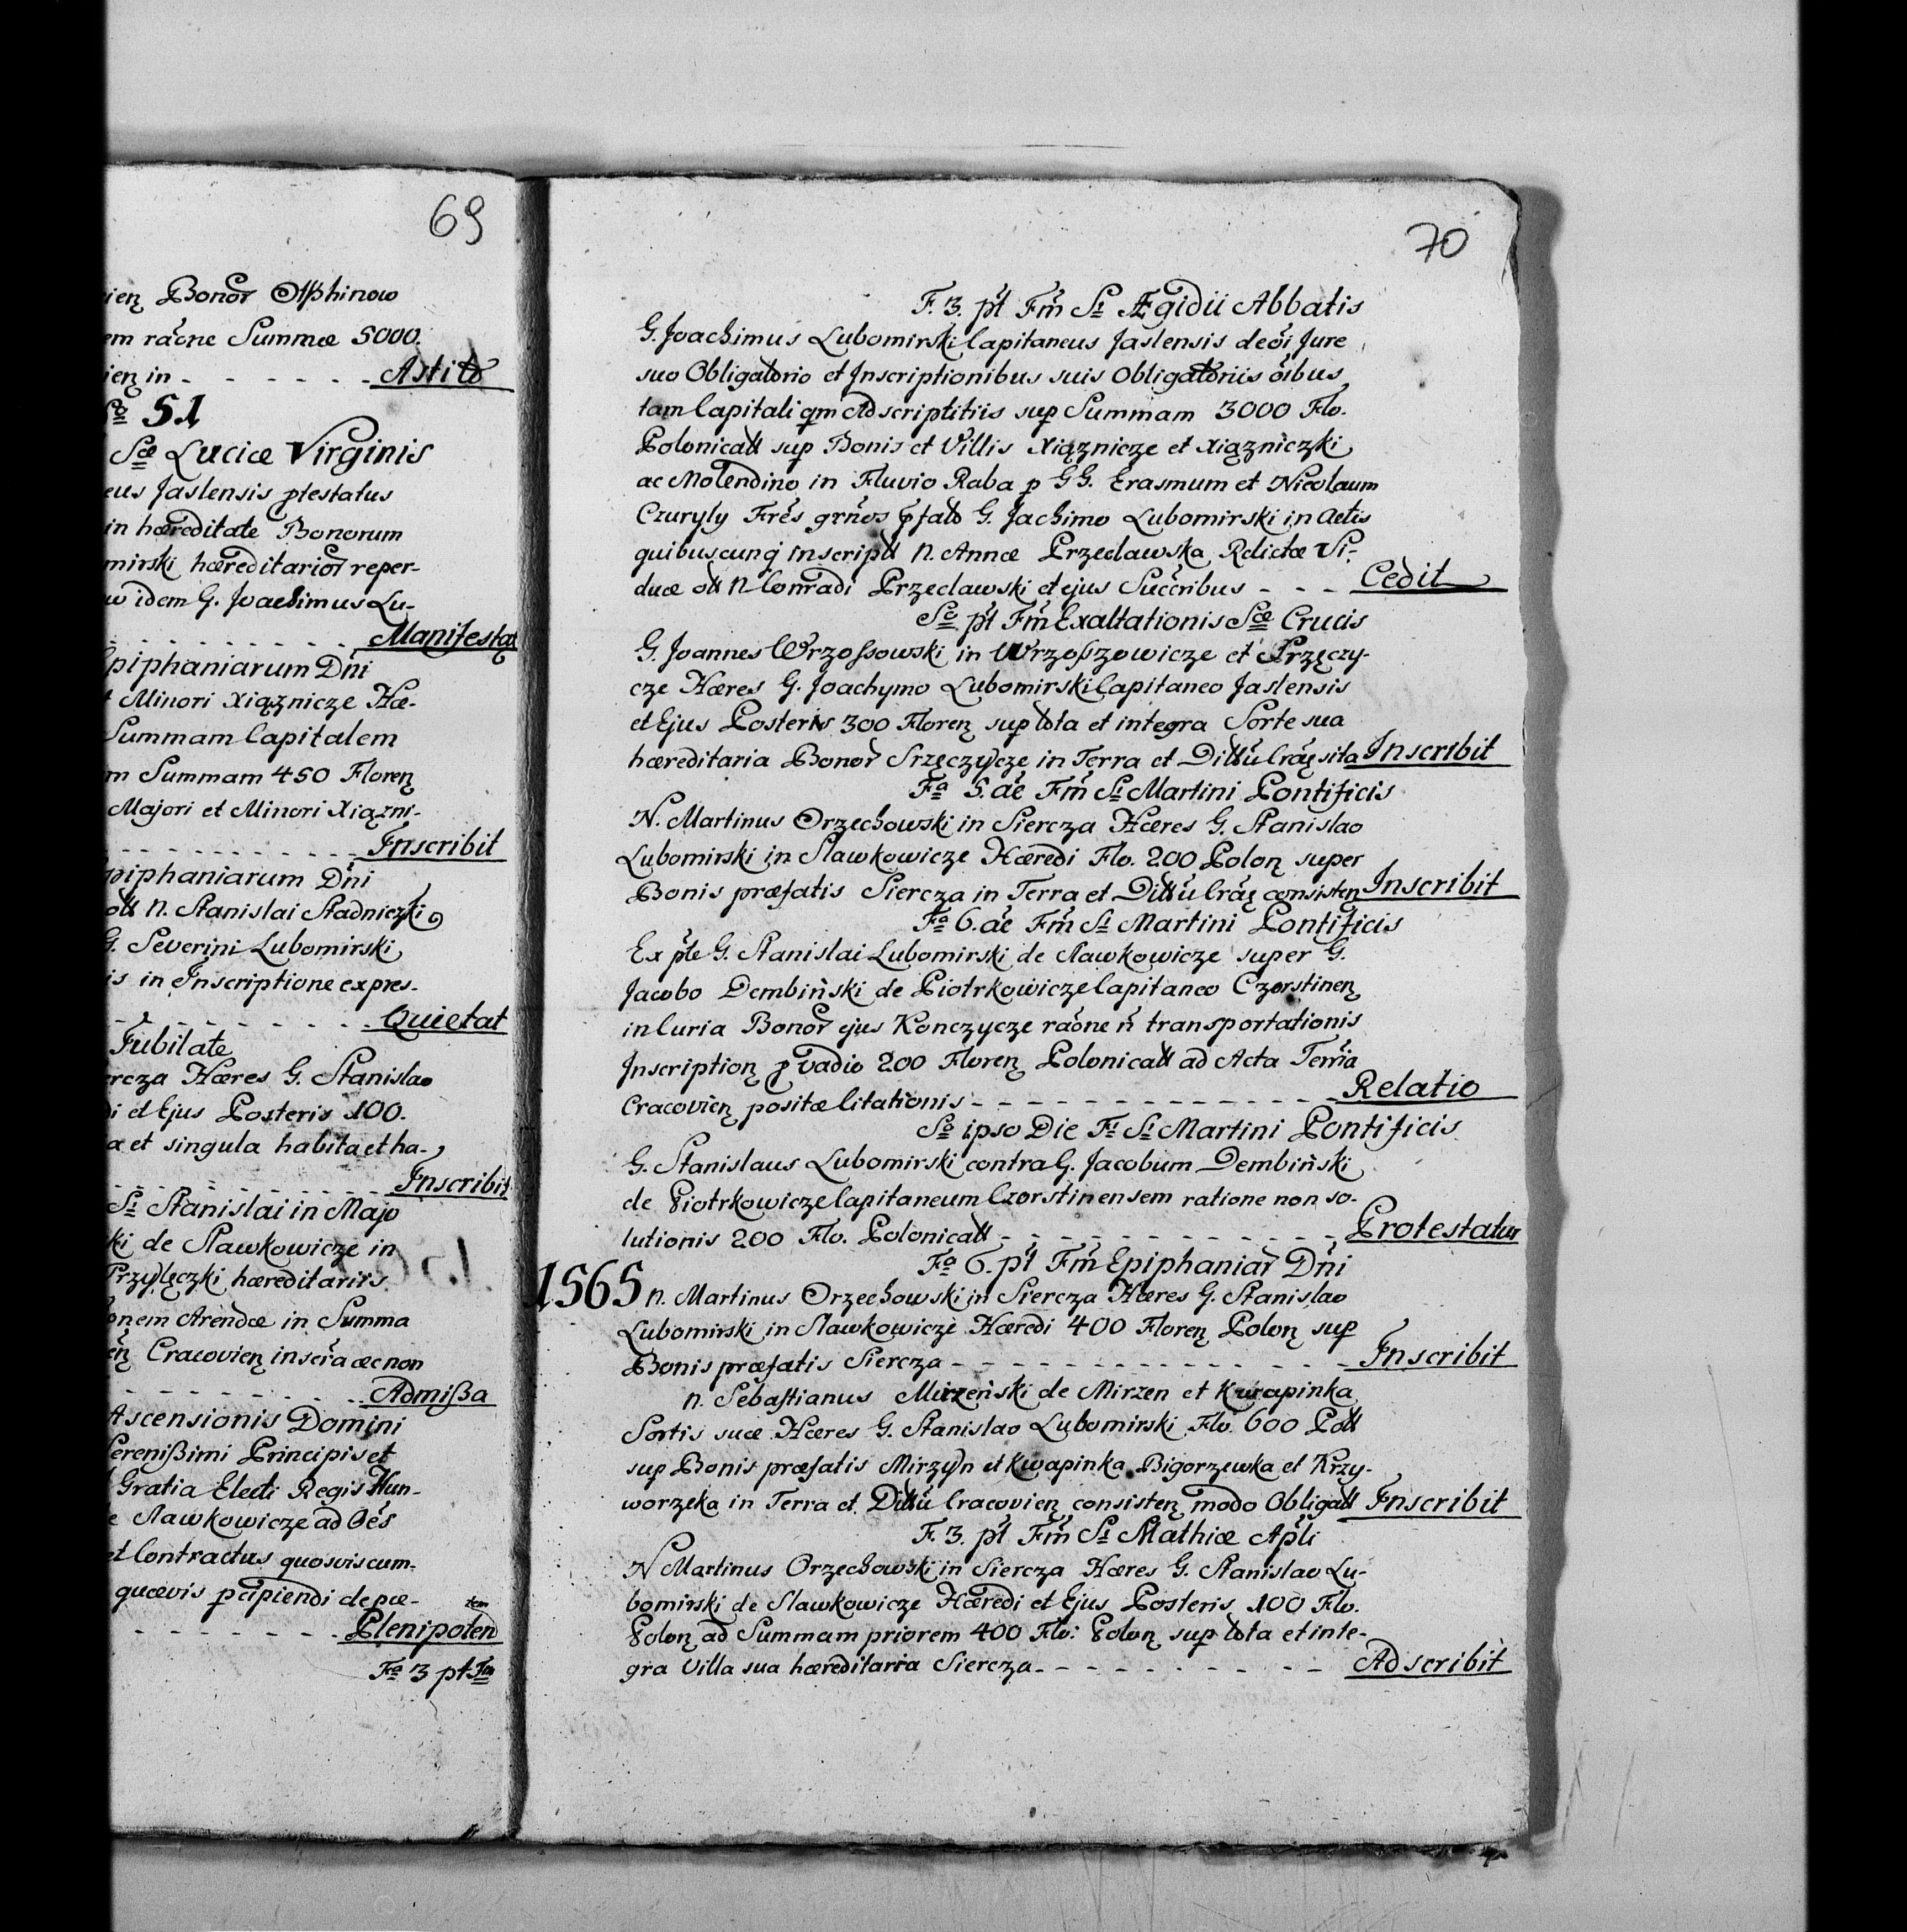 69
ień Bonor̃ Olsshinow
em raõne Summæ 5000.
ień in - - - - - - Astitõ
So 51
Scæ Luciæ Virginis
eus Jaslensis ptestatus
in hæreditate Bonorum
mirski hæreditarior̃ reper-
w idem G. Joachimus Lu-
- - - - - - - - Manifestat
Epiphaniarum Dni
Minori Xiąznicze Hæ-
Summam Capitalem
m Summam 450 Floren̨
Majori et Minori Xiązni-
- - - - - - - - Inscribit
Epiphaniarum Dñi
ott N. Stanislai Stadniczki
G. Severini Lubomirski
is in Inscriptione expres-
- - - - - - - - Quietat
Jubilate
ercza Hæres G. Stanislao
di et Ejus Posteris 100.
a et singula habita et ha-
- - - - - - - - Inscribit
Si Stanislai in Majo
ki de Slawkowicze in
Przylęczki hæreditariis
onem Arendæ in Summa
eñ Cracovien̨ inscra ac non
- - - - - - - - Admißa
Ascensionis Domini
Serenißimi Principis et
Gratia Electi Regis Hun-
e Slawkowicze ad Oẽs
et Contractus quosvis cum-
quævis pcipiendi de pæ-
- - - - - - - Plenipoten tem
Fa 3 pt Fm
70
F. 3. pt̃ Fm̃ Si Ægidii Abbatis
G. Joachimus Lubomirski Capitaneus Jaslensis de oĩ Jure
suo Obligatorio et Inscriptionibus suis Obligatoriis oĩbus
tam Capitali qm Adscriptitiis sup Summam 3000 Flo.
Polonicatt sup Bonis et Villis Xiąznicze et Xiązniczki
ac Molendino in Fluvio Raba p GG. Erasmum et Nicolaum
Czuryly Frẽs grños p̃fato G. Jachimo Lubomirski in Actis
quibuscunq̃ inscriptt N. Annæ Przeclawska Relictæ Vi-
duæ ott N Conradi Przeclawski et ejus Succribus - - - Cedit
So pt̃ Fm̃ Exaltationis Scæ Crucis
G. Joannes Wrzossowski in Wrzoszowicze et Srzęczy-
cze Hæres G. Joachymo Lubomirski Capitaneo Jaslensis
et Ejus Posteris 300 Floren̨ sup tota et integra Sorte sua
hæreditaria Bonor̃ Srzęczycze in Terra et Dittũ Crac̨ sita Inscribit
Fa 5. ãe Fm̃ Si Martini Pontificis
N. Martinus Orzechowski in Siercza Hæres G. Stanislao
Lubomirski in Slawkowicze Hæredi Flo. 200 Polon̨ super
Bonis præfatis Siercza in Terra et Dittũ Crac̨ consisten̨ Inscribit
Fa 6. ãe Fm̃ Si Martini Pontificis
Ex pte G. Stanislai Lubomirski de Slawkowicze super G.
Jacobo Dembiński de Piotrkowicze Capitaneo Czorstinen̨
in Curia Bonor̃ ejus Konczycze raõne ñ transportationis
Inscription̨ p vadio 200 Floren̨ Polonicatt ad Acta Terria
Cracovien̨ positæ Citationis - - - - - - - - - - - - Relatio
So ipso Die Fi Si Martini Pontificis
G. Stanislaus Lubomirski contra G. Jacobum Dembiński
de Piotrkowicze Capitaneum Czorstinensem ratione non so-
lutionis 200 Flo. Polonicatt - - - - - - - - - - - Protestatur
Fa 6. pt̃ Fm̃ Epiphaniar̃ Dñi
1565 N. Martinus Orzechowski in Siercza Hæres G. Stanislao
Lubomirski in Slawkowicze Hæredi 400 Floren̨ Polon̨ sup
Bonis præfatis Siercza - - - - - - - - - - - - - Inscribit
N. Sebastianus Mirzeński de Mirzen et Kwapinka
Sortis suæ Hæres G. Stanislao Lubomirski Flo. 600 Pott
sup Bonis præfatis Mirzyn et Kwapinka Bigorzewka et Krzy-
worzeka in Terra et Dittũ Cracovien̨ consisten̨ modo Obligatt Inscribit
F. 3. pt̃ Fm̃ Si Mathiæ Apli
N Martinus Orzechowski in Siercza Hæres G. Stanislao Lu-
bomirski de Slawkowicze Hæredi et Ejus Posteris 100 Flo.
Polon̨ ad Summam priorem 400 Flo: Polon̨ sup tota et inte-
gra Villa sua hæreditaria Siercza - - - - - - - - - Adscribit